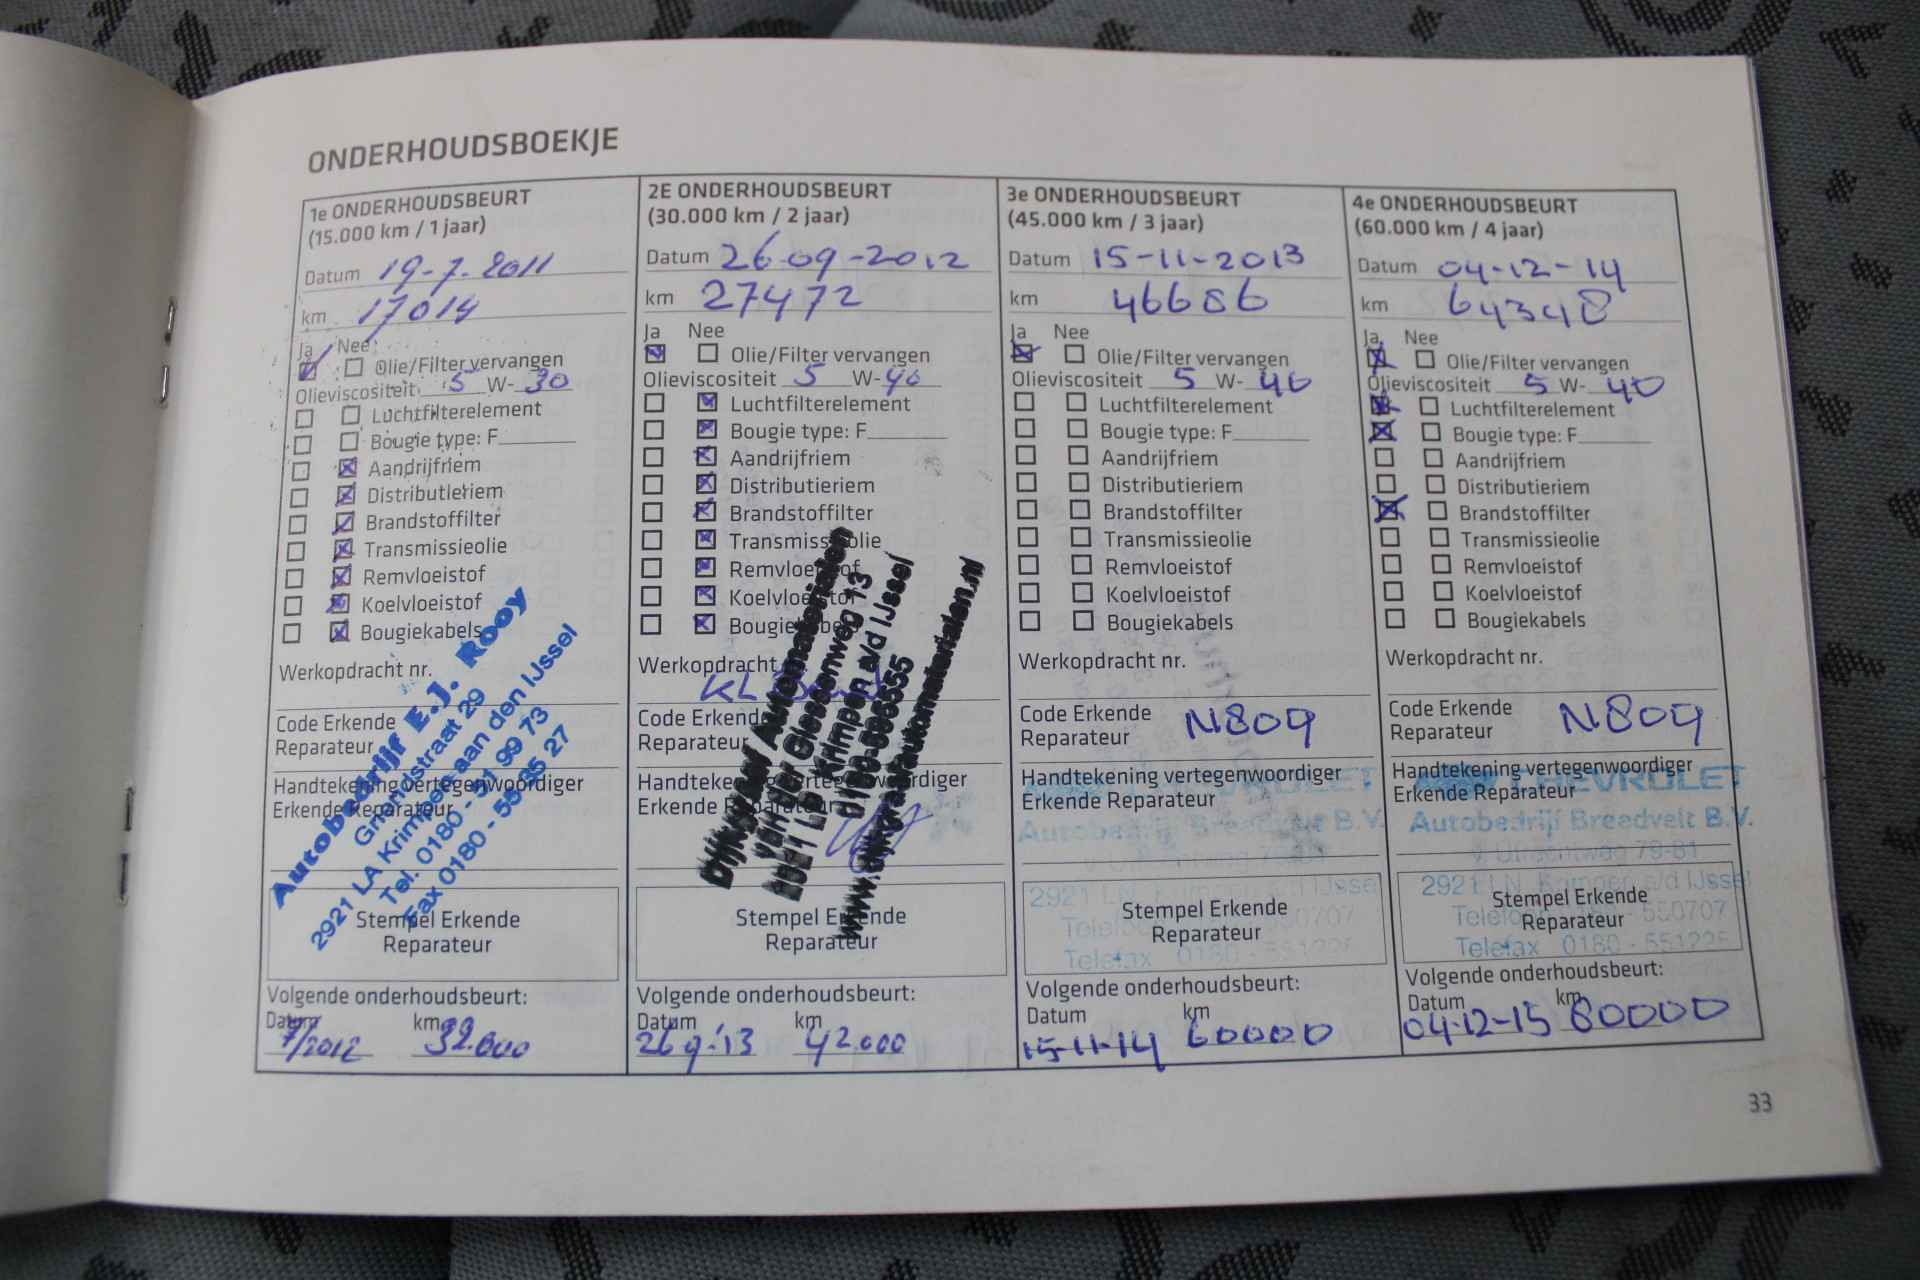 ONDERHOUDSBOEKJE
1e ONDERHOUDSBEURT
(15.000 km / 1 jaar)
Datum 19-7-2011
km 17014
Ja Nee
Olie/Filter vervangen
Olieviscositeit 5 W- 30
Luchtfilterelement
Bougie type: F
Aandrijfriem
Distributieriem
Brandstoffilter
Transmissieolie
Remvloeistof
Koelvloeistof
Bougiekabels
Werkopdracht nr.
Code Erkende
Reparateur
Handtekening vertegenwoordiger
Erkende Reparateur
Autobedrijf E.J. Rooy
Grondstraat 29
2921 LA Krimpen aan den IJssel
Tel. 0180 - 51 99 73
Fax 0180 - 55 35 27
Stempel Erkende
Reparateur
Volgende onderhoudsbeurt:
Datum km
7/2012 32.000
2E ONDERHOUDSBEURT
(30.000 km / 2 jaar)
Datum 26-09-2012
km 27472
Ja Nee
Olie/Filter vervangen
Olieviscositeit 5 W- 40
Luchtfilterelement
Bougie type: F
Aandrijfriem
Distributieriem
Brandstoffilter
Transmissieolie
Remvloeistof
Koelvloeistof
Bougiekabels
Werkopdracht
Code Erkende
Reparateur
Handtekening vertegenwoordiger
Erkende Reparateur
Dijkgraaf Automaterialen
van der Giessenweg 13
Krimpen a/d IJssel
www.dijkgraafautomaterialen.nl
Stempel Erkende
Reparateur
Volgende onderhoudsbeurt:
Datum km
26 9-'13 42.000
3e ONDERHOUDSBEURT
(45.000 km / 3 jaar)
Datum 15-11-2013
km 46686
Ja Nee
Olie/Filter vervangen
Olieviscositeit 5 W- 40
Luchtfilterelement
Bougie type: F
Aandrijfriem
Distributieriem
Brandstoffilter
Transmissieolie
Remvloeistof
Koelvloeistof
Bougiekabels
Werkopdracht nr.
Code Erkende N809
Reparateur
Handtekening vertegenwoordiger
Erkende Reparateur
CHEVROLET
Autobedrijf Breedvelt B.V.
2921 LN Krimpen a/d IJssel
Telefax 0180 - 551225
Stempel Erkende
Reparateur
Volgende onderhoudsbeurt:
Datum km
15-11-14 60000
4e ONDERHOUDSBEURT
(60.000 km / 4 jaar)
Datum 04-12-14
km 64348
Ja Nee
Olie/Filter vervangen
Olieviscositeit 5 W- 40
Luchtfilterelement
Bougie type: F
Aandrijfriem
Distributieriem
Brandstoffilter
Transmissieolie
Remvloeistof
Koelvloeistof
Bougiekabels
Werkopdracht nr.
Code Erkende N809
Reparateur
Handtekening vertegenwoordiger
Erkende Reparateur
CHEVROLET
Autobedrijf Breedvelt B.V.
79-81
2921 LN Krimpen a/d IJssel
Telefoon 0180 - 550707
Telefax 0180 - 551225
Stempel Erkende
Reparateur
Volgende onderhoudsbeurt:
Datum km
04-12-15 80000
33